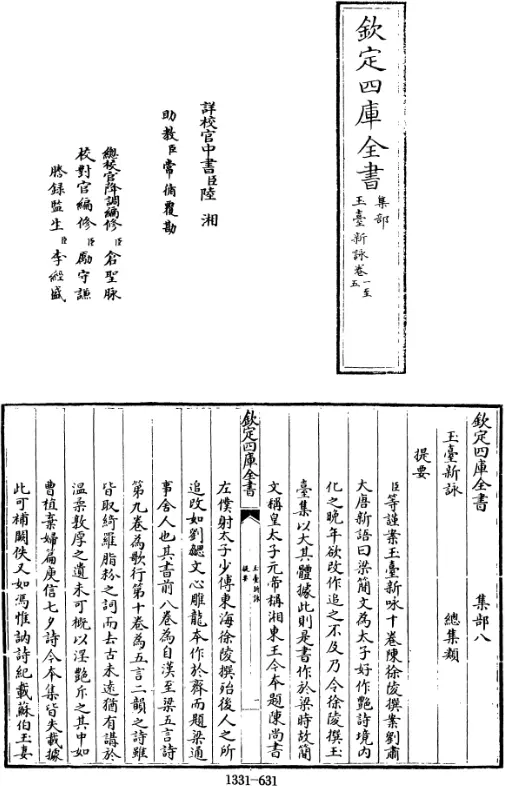 欽定四庫全書
集部
玉臺新詠卷一至五
詳校官中書臣陸湘
助教臣常循覆勘
總校官降調編修臣倉聖脉
校對官編修臣勵守謙
謄錄監生臣李
欽定四庫全書 集部八
玉臺新詠 總集類
提要
臣等謹案玉臺新咏十卷陳徐陵撰案劉肅
大唐新語曰梁簡文為太子好作艷詩境内
化之晚年欲改作追之不及乃令徐陵撰玉
臺集以大其體據此則是書作於梁時故簡
文稱皇太子元帝稱湘東王今本題陳尚書
欽定四庫全書
玉臺新詠
提要
一
左僕射太子少傅東海徐陵撰殆後人之所
追改如劉勰文心雕龍本作於齊而題梁通
事舍人也其書前八卷為自漢至梁五言詩
第九卷為歌行第十卷為五言二韻之詩雖
皆取綺羅脂粉之詞而去古未遠猶有講於
温柔敦厚之遺未可概以淫艷斥之其中如
曹植棄婦篇庾信七夕詩今本集皆失載據
此可補闕佚又如馮惟訥詩紀載蘇伯玉妻
1331-631